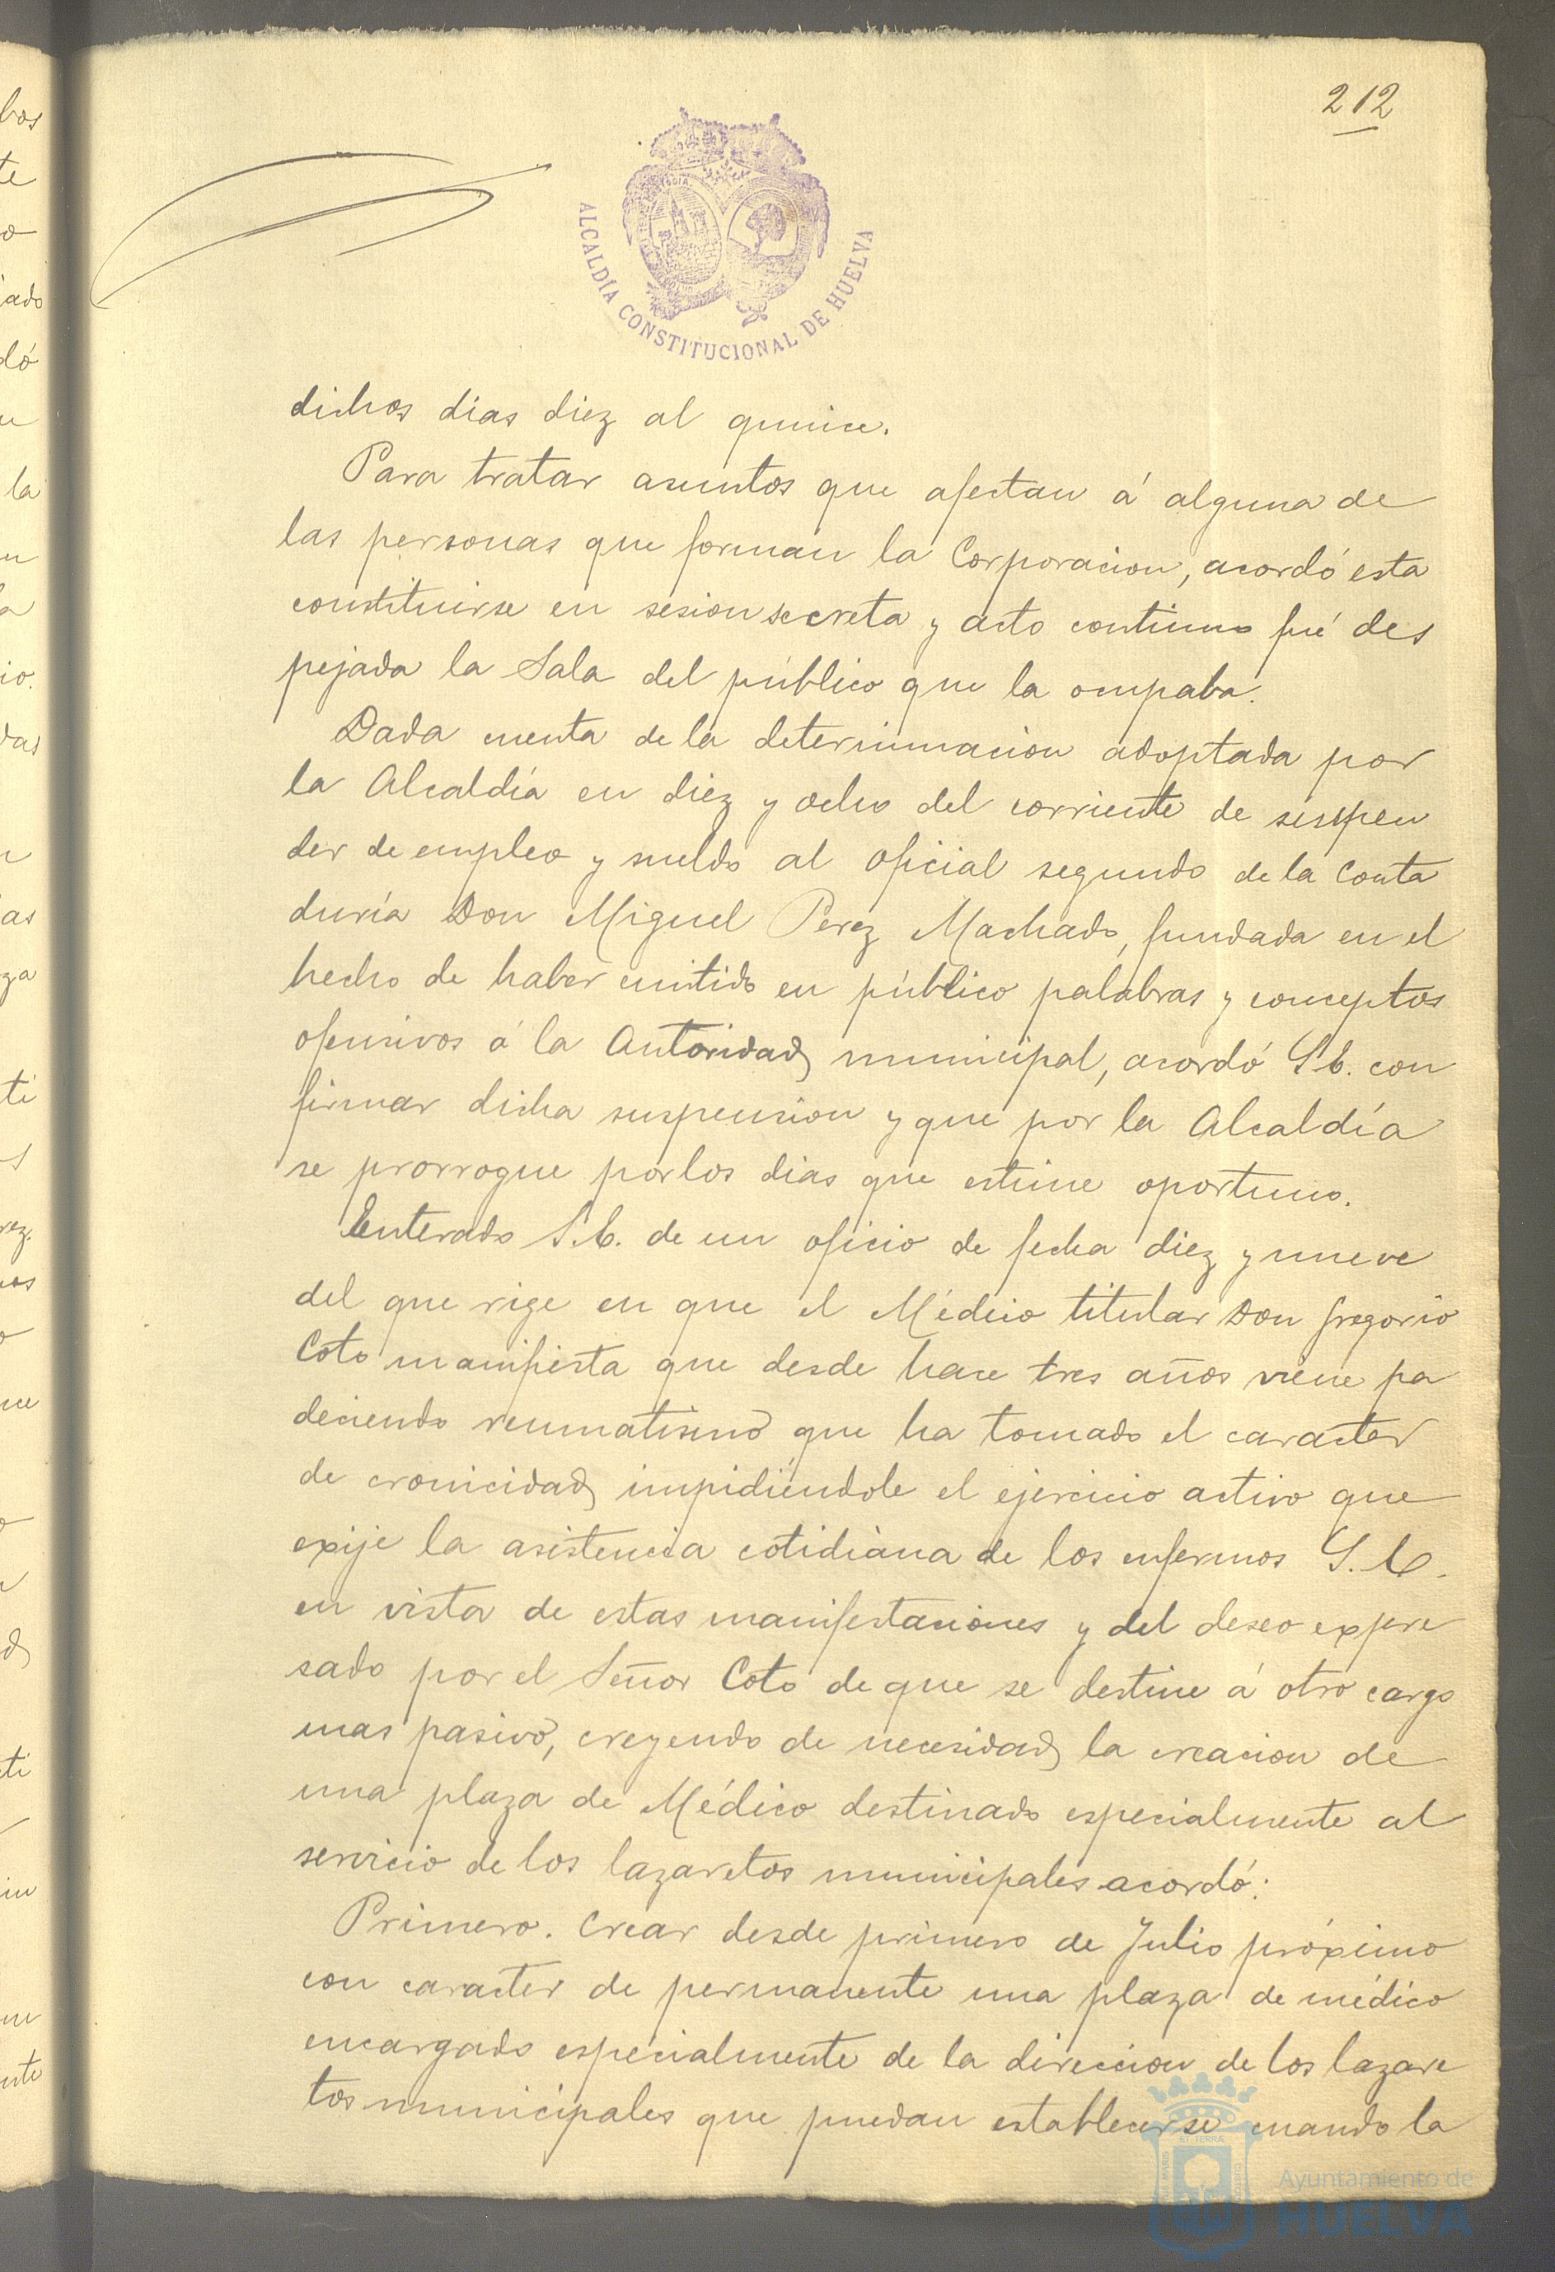 212
ALCALDÍA CONSTITUCIONAL DE HUELVA
dichos dias diez al quince.
Para tratar asuntos que afectan á alguna de
las personas que forman la Corporacion, acordó esta
constituirse en sesion secreta y acto continuo fué des
pejada la Sala del público que la ocupaba.
Dada cuenta de la determinacion adoptada por
la Alcaldía en diez y ocho del corriente de suspen
der de empleo y sueldo al oficial segundo de la Conta
duría Don Miguel Perez Machado, fundada en el
hecho de haber emitido en público palabras y conceptos
ofensivos á la Autoridad municipal, acordó S.E. con
firmar dicha suspension y que por la Alcaldía
se prorrogue por los dias que estime oportuno.
Enterado S.E. de un oficio de fecha diez y nueve
del que rige en que el Médico titular Don Gregorio
Coto manifiesta que desde hace tres años viene pa
deciendo reumatismo que ha tomado el caracter
de cronicidad impidiéndole el ejercicio activo que
exije la asistencia cotidiana de los enfermos S.E.
en vista de estas manifestaciones y del deseo expre
sado por el Señor Coto de que se destine á otro cargo
mas pasivo, creyendo de necesidad la creacion de
una plaza de Médico destinado especialmente al
servicio de los lazaretos municipales acordó:
Primero. Crear desde primero de Julio próximo
con caracter de permanente una plaza de médico
encargado especialmente de la direccion de los lazare
tos municipales que puedan establecerse cuando la
Ayuntamiento de
HUELVA